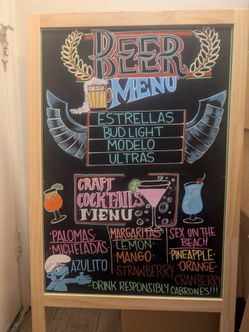 BEER
MENU
ESTRELLAS
BUD LIGHT
MODELO
ULTRAS
CRAFT
COCKTAILS
MENU
PALOMAS
MICHELADAS
AZULITO
MARGARITAS
LEMON
MANGO
STRAWBERRY
SEX ON THE
BEACH
PINEAPPLE
ORANGE
CRANBERRY
DRINK RESPONSIBLY CABRONES!!!